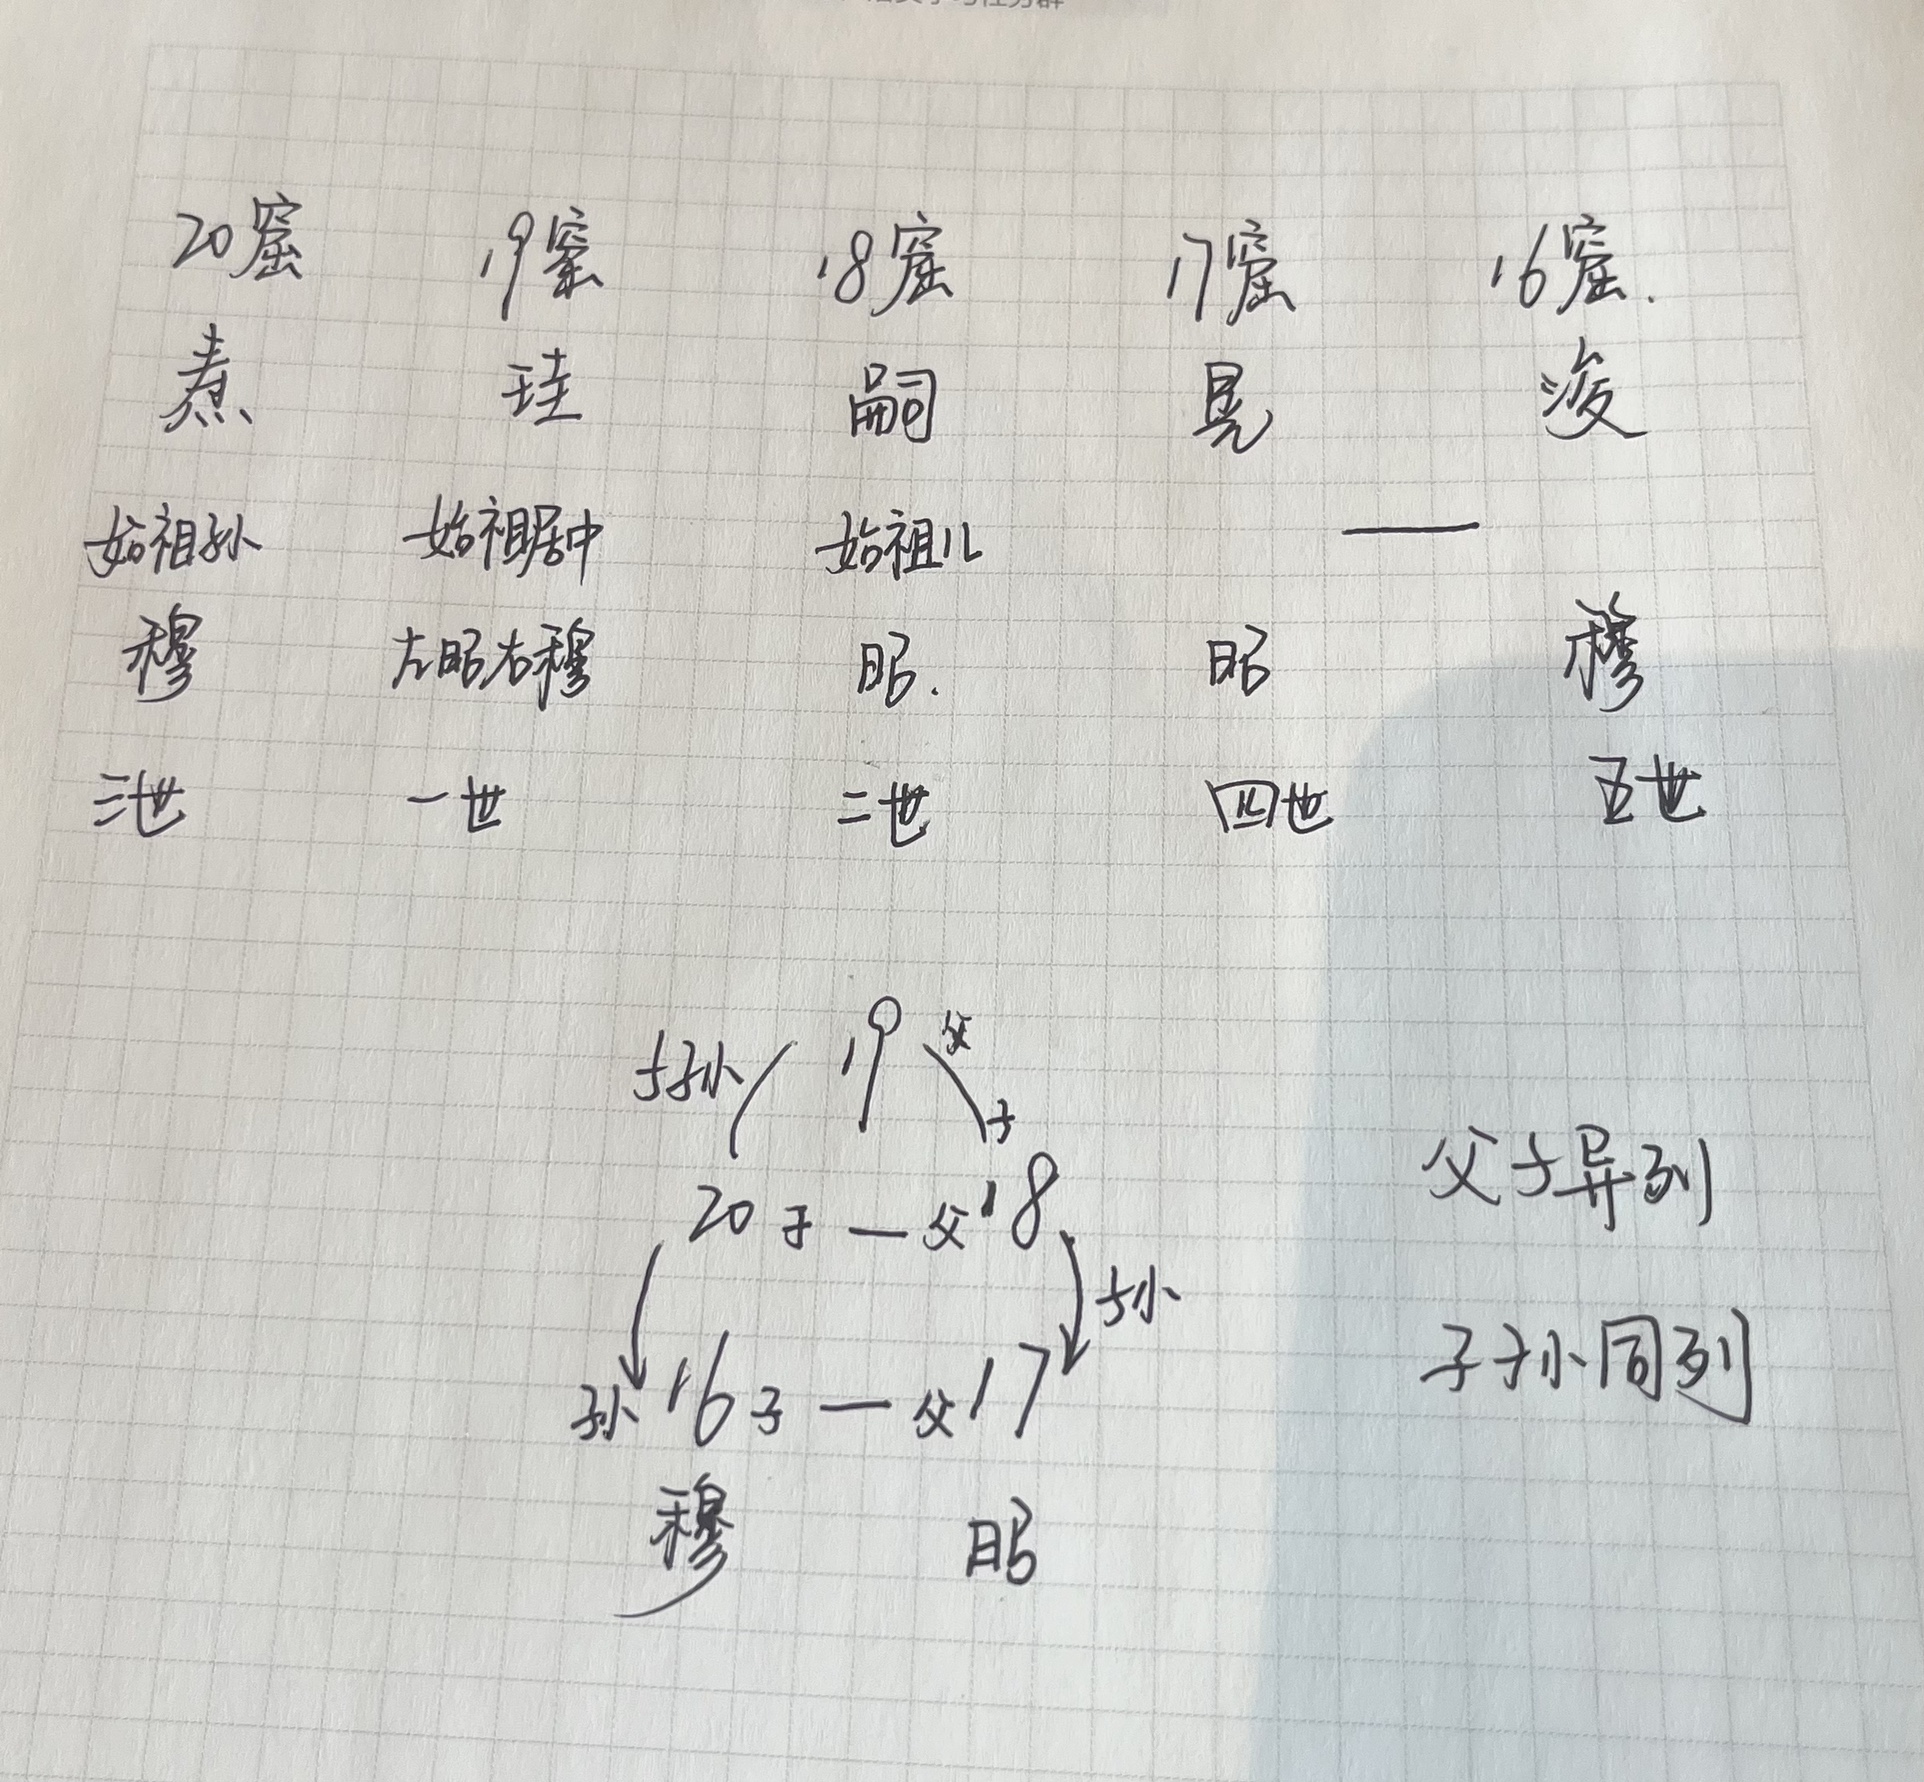 20窟 19窟 18窟 17窟 16窟.
焘 珪 嗣 晃 浚
始祖孙 始祖居中 始祖儿 —
穆 左昭右穆 昭. 昭 穆
三世 一世 二世 四世 五世
孙 19 父
子
20 子 — 父 18
孙
孙 16 子 — 父 17
穆 昭
父子异列
子孙同列